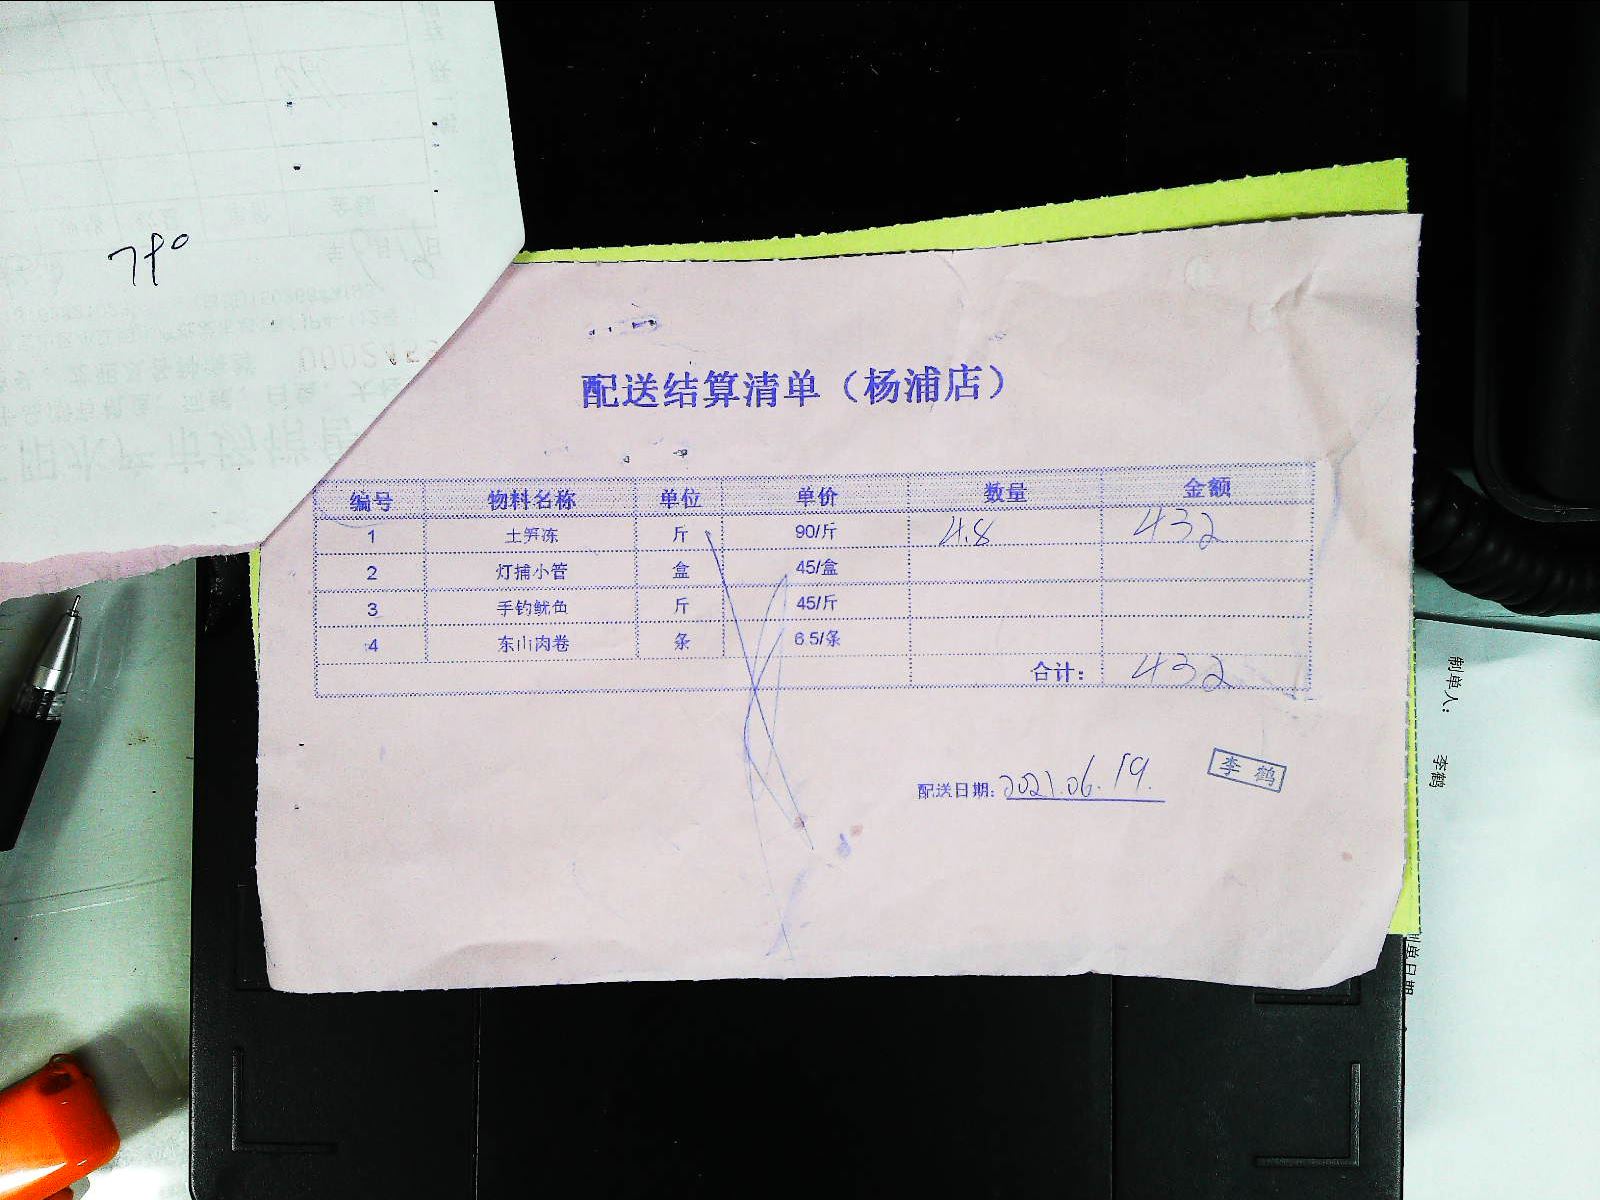 配送结算清单（杨浦店）
编号 物料名称 单位 单价 数量 金额
1 土笋冻 斤 90/斤 4.8 432
2 灯捕小管 盒 45/盒
3 手钓鱿鱼 斤 45/斤
4 东山肉卷 条 6.5/条
合计： 432
配送日期：2021.06.19.
李鹤
制单人： 李鹤
制单日期